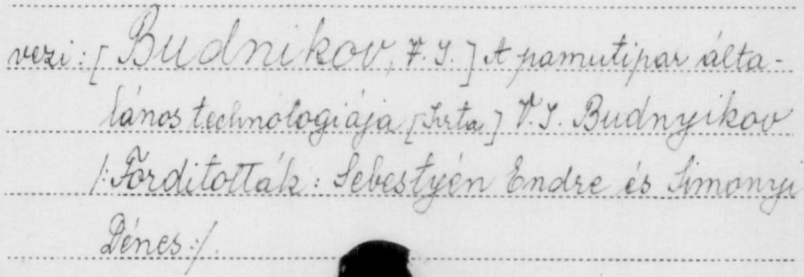 vezi: [Budnikov, V. I.] A pamutipar álta-
lános technologiája [Irta] V. I. Budnyikov
/: Forditották: Sebestyén Endre és Simonyi
Dénes :/.